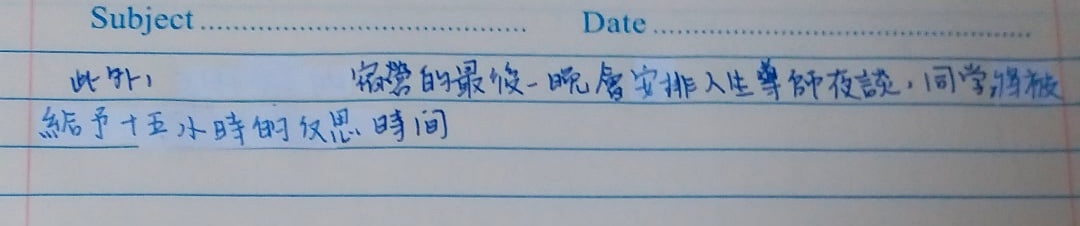 Subject........................................ Date........................................
此外, 宿營的最後一晚會安排人生導師夜談,同学將被
給予十五小時的反思時间